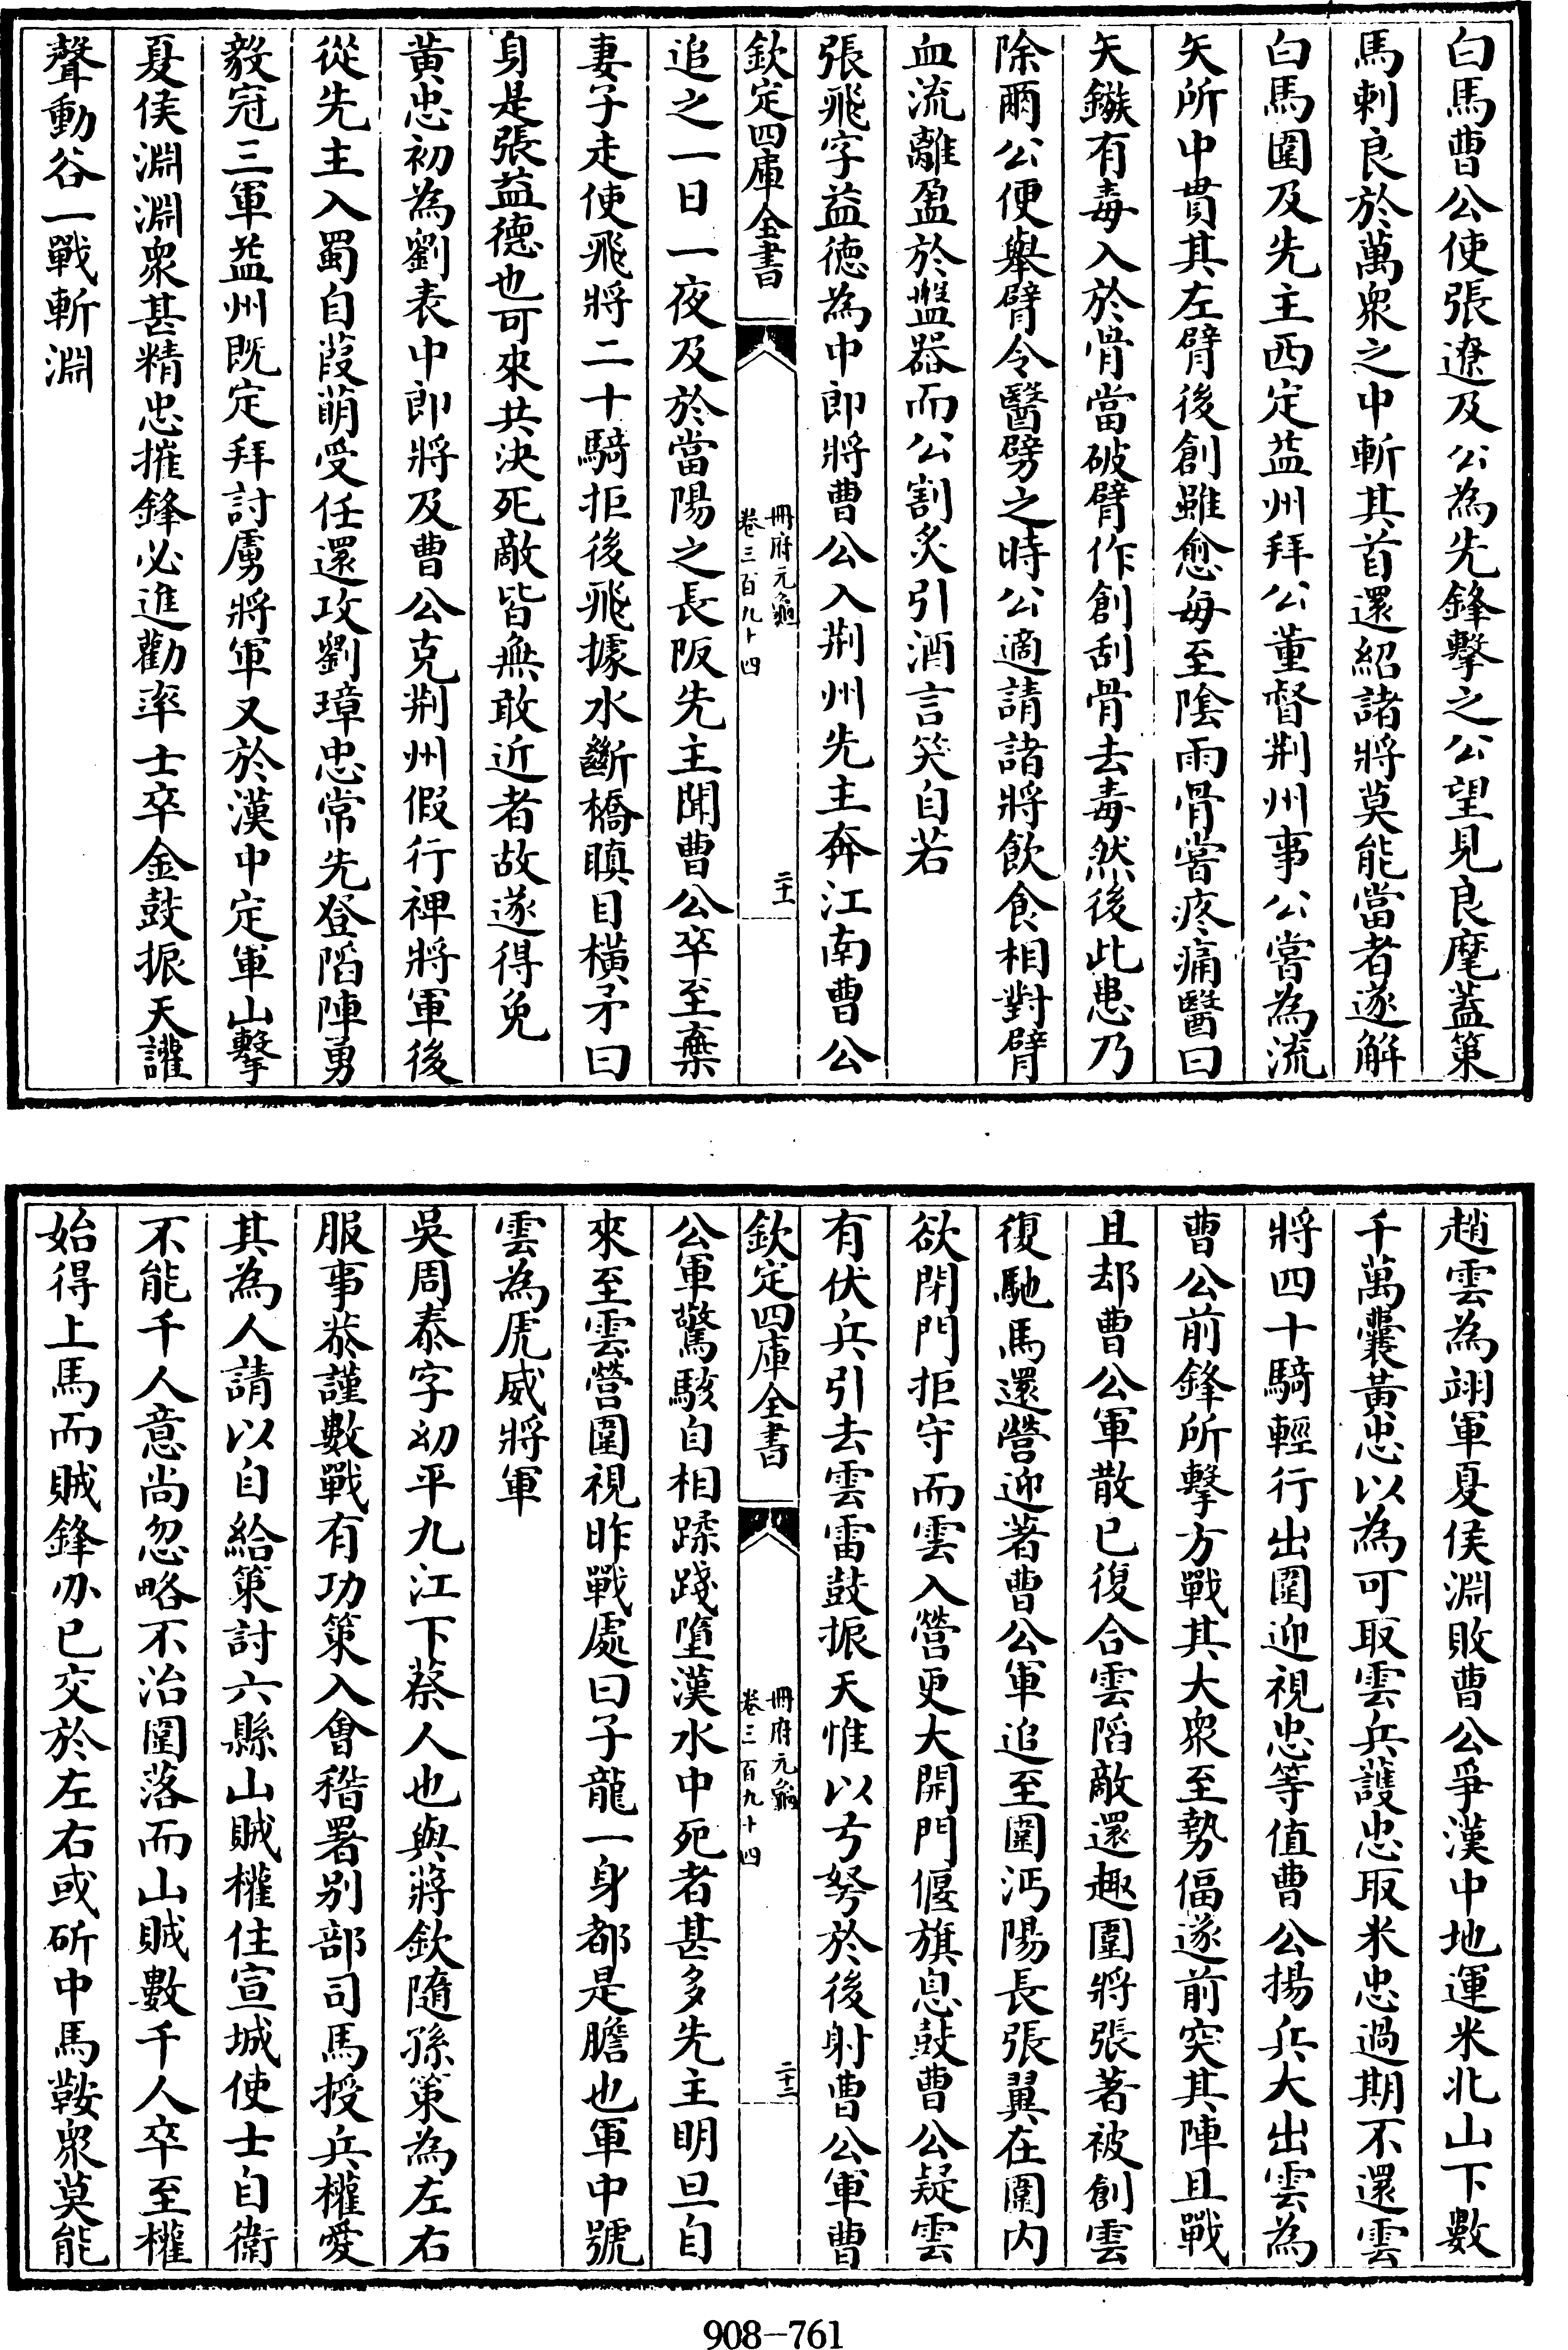 白馬曹公使張遼及公為先鋒擊之公望見良麾蓋策
馬刺良於萬衆之中斬其首還紹諸將莫能當者遂解
白馬圍及先主西定益州拜公董督荆州事公嘗為流
矢所中貫其左臂後創雖愈每至陰雨骨嘗疼痛醫曰
矢鏃有毒入於骨當破臂作創刮骨去毒然後此患乃
除爾公便舉臂令醫劈之時公適請諸將飲食相對臂
血流離盈於盤器而公割炙引酒言笑自若
張飛字益徳為中郎將曹公入荆州先主奔江南曹公
欽定四庫全書
冊府元龜
卷三百九十四
二十二
追之一日一夜及於當陽之長阪先主聞曹公卒至棄
妻子走使飛將二十騎拒後飛據水斷橋瞋目橫矛曰
身是張益德也可來共決死敵皆無敢近者故遂得免
黃忠初為劉表中郎將及曹公克荆州假行裨將軍後
從先主入蜀自葭萌受任還攻劉璋忠常先登陷陣勇
毅冠三軍益州既定拜討虜將軍又於漢中定軍山擊
夏侯淵淵衆甚精忠摧鋒必進勸率士卒金鼓振天讙
聲動谷一戰斬淵
趙雲為翊軍夏侯淵敗曹公爭漢中地運米北山下數
千萬囊黃忠以為可取雲兵護忠取米忠過期不還雲
將四十騎輕行出圍迎視忠等值曹公揚兵大出雲為
曹公前鋒所擊方戰其大衆至勢偪遂前突其陣且戰
且却曹公軍散已復合雲陷敵還趣圍將張著被創雲
復馳馬還營迎著曹公軍追至圍沔陽長張翼在圍内
欲閉門拒守而雲入營更大開門偃旗息鼓曹公疑雲
有伏兵引去雲雷鼓振天惟以弓弩於後射曹公軍曹
欽定四庫全書
冊府元龜
卷三百九十四
二十三
公軍驚駭自相蹂踐墮漢水中死者甚多先主明旦自
來至雲營圍視昨戰處曰子龍一身都是膽也軍中號
雲為虎威將軍
吳周泰字幼平九江下蔡人也與蔣欽隨孫策為左右
服事恭謹數戰有功策入會稽署别部司馬授兵權愛
其為人請以自給策討六縣山賊權住宣城使士自衛
不能千人意尚忽略不治圍落而山賊數千人卒至權
始得上馬而賊鋒刅已交於左右或斫中馬鞍衆莫能
908-761